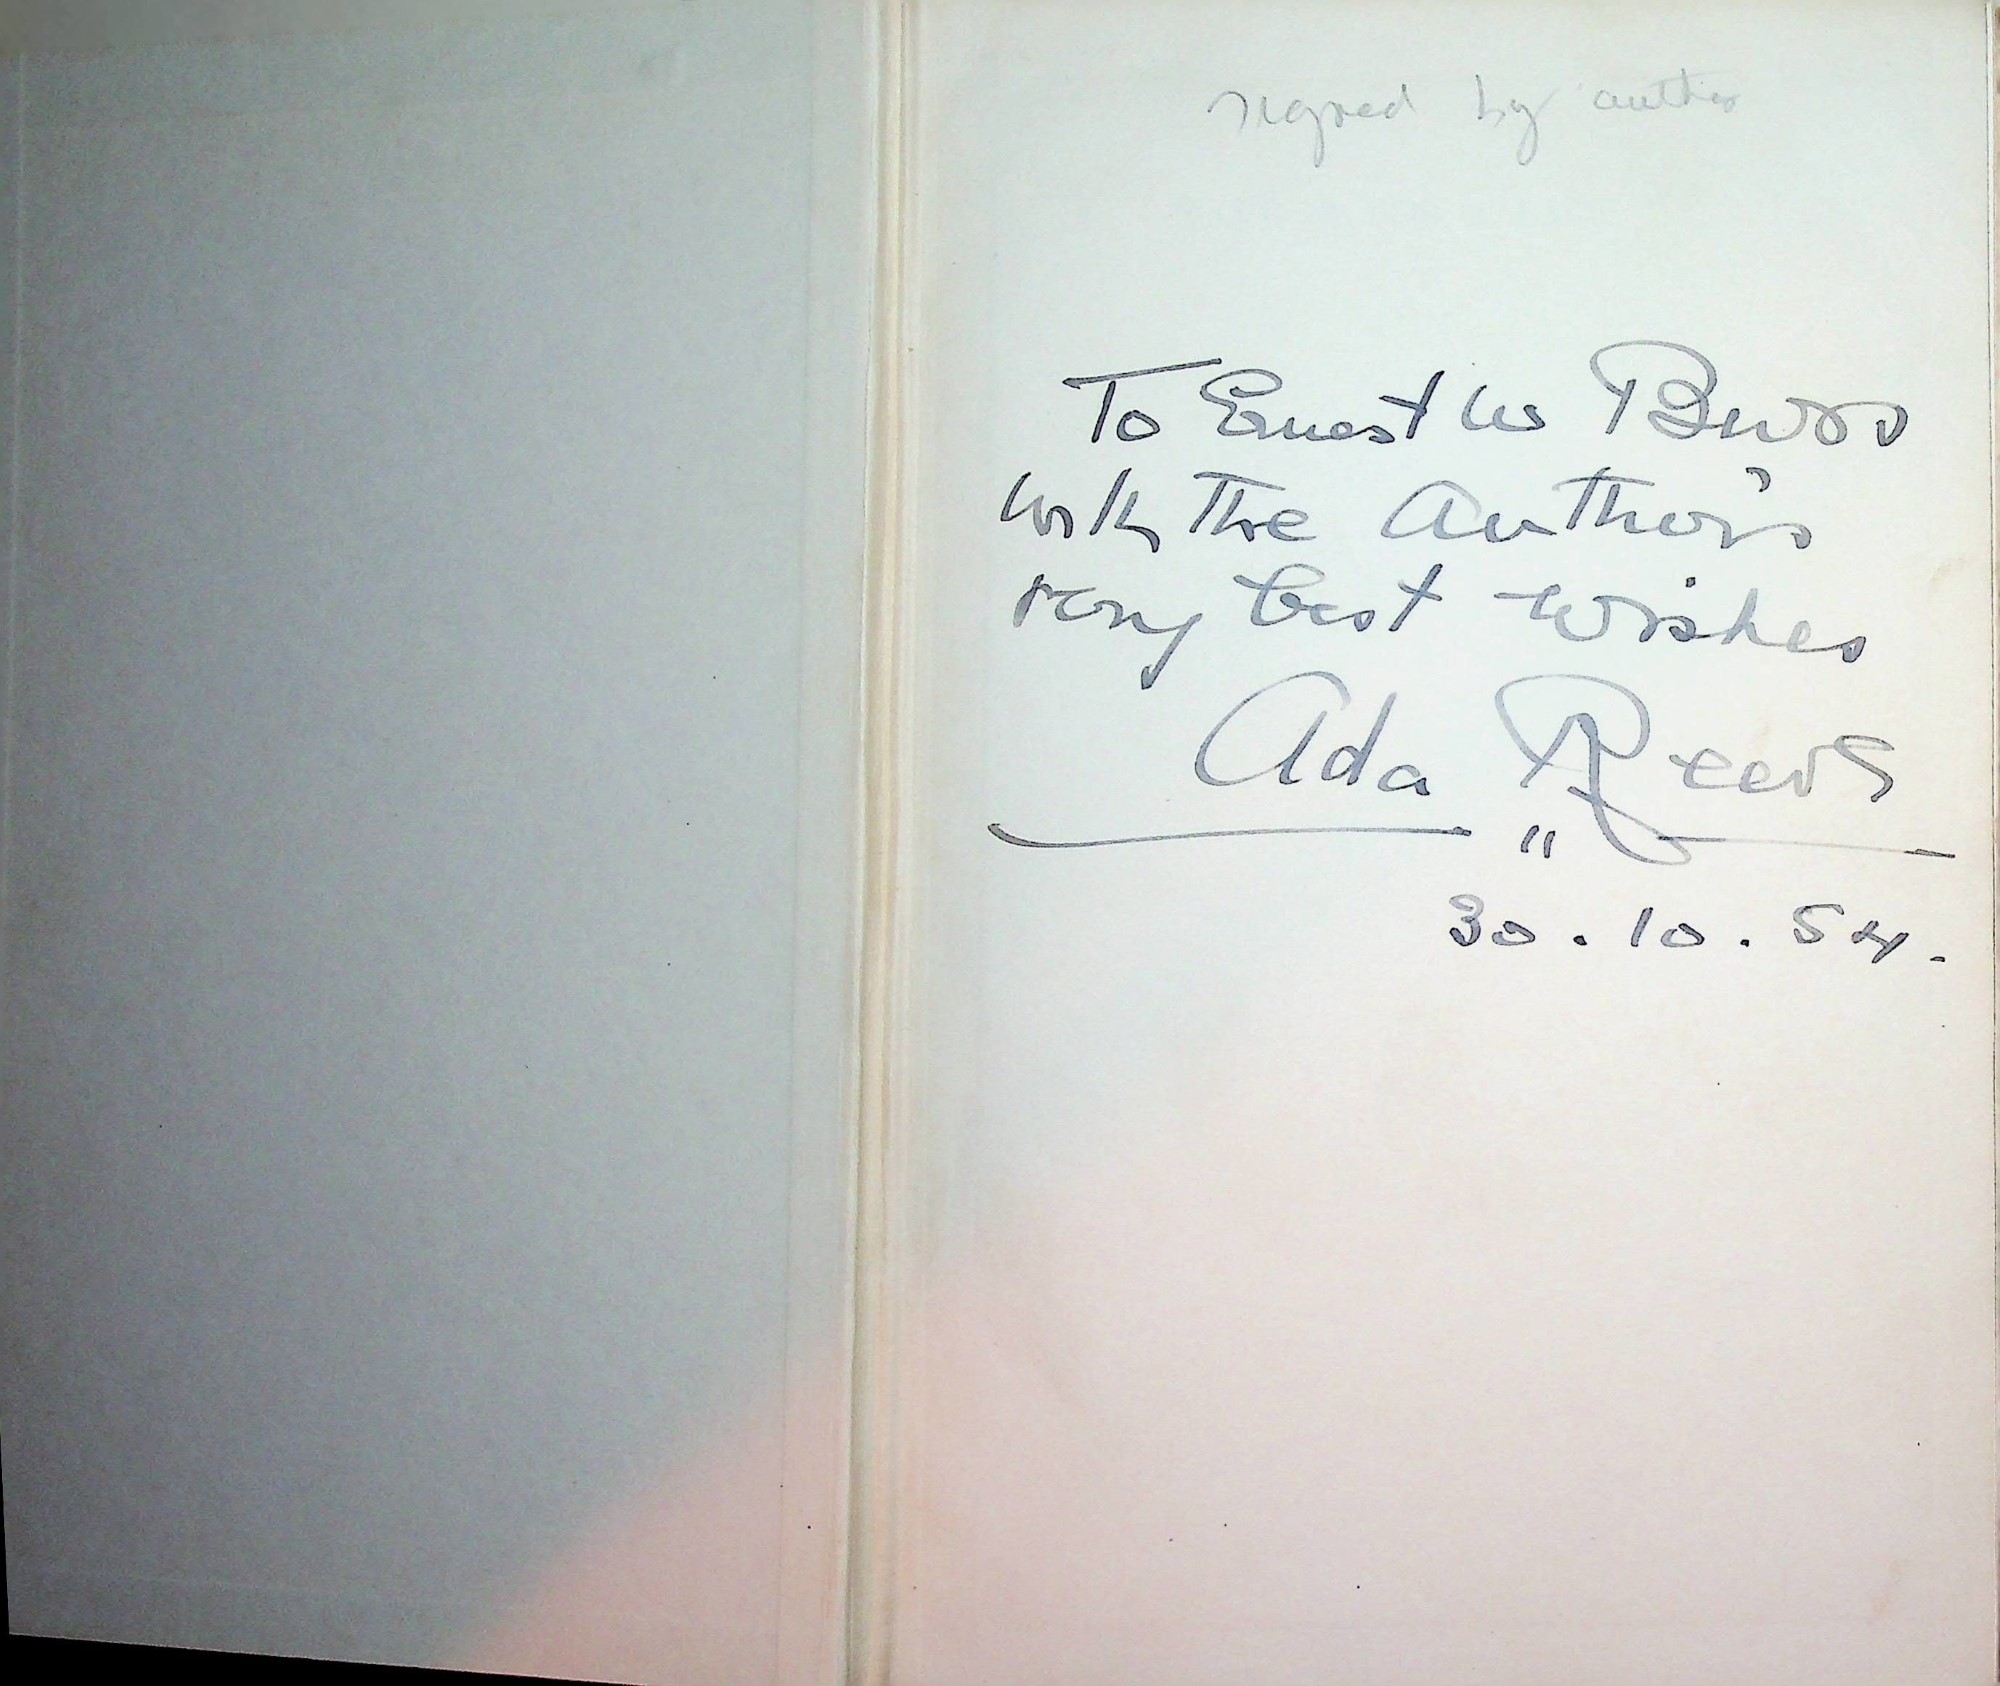 signed by author
To Ernest W
with The Author's
very best wishes
Ada Reeve
"
30.10.54.